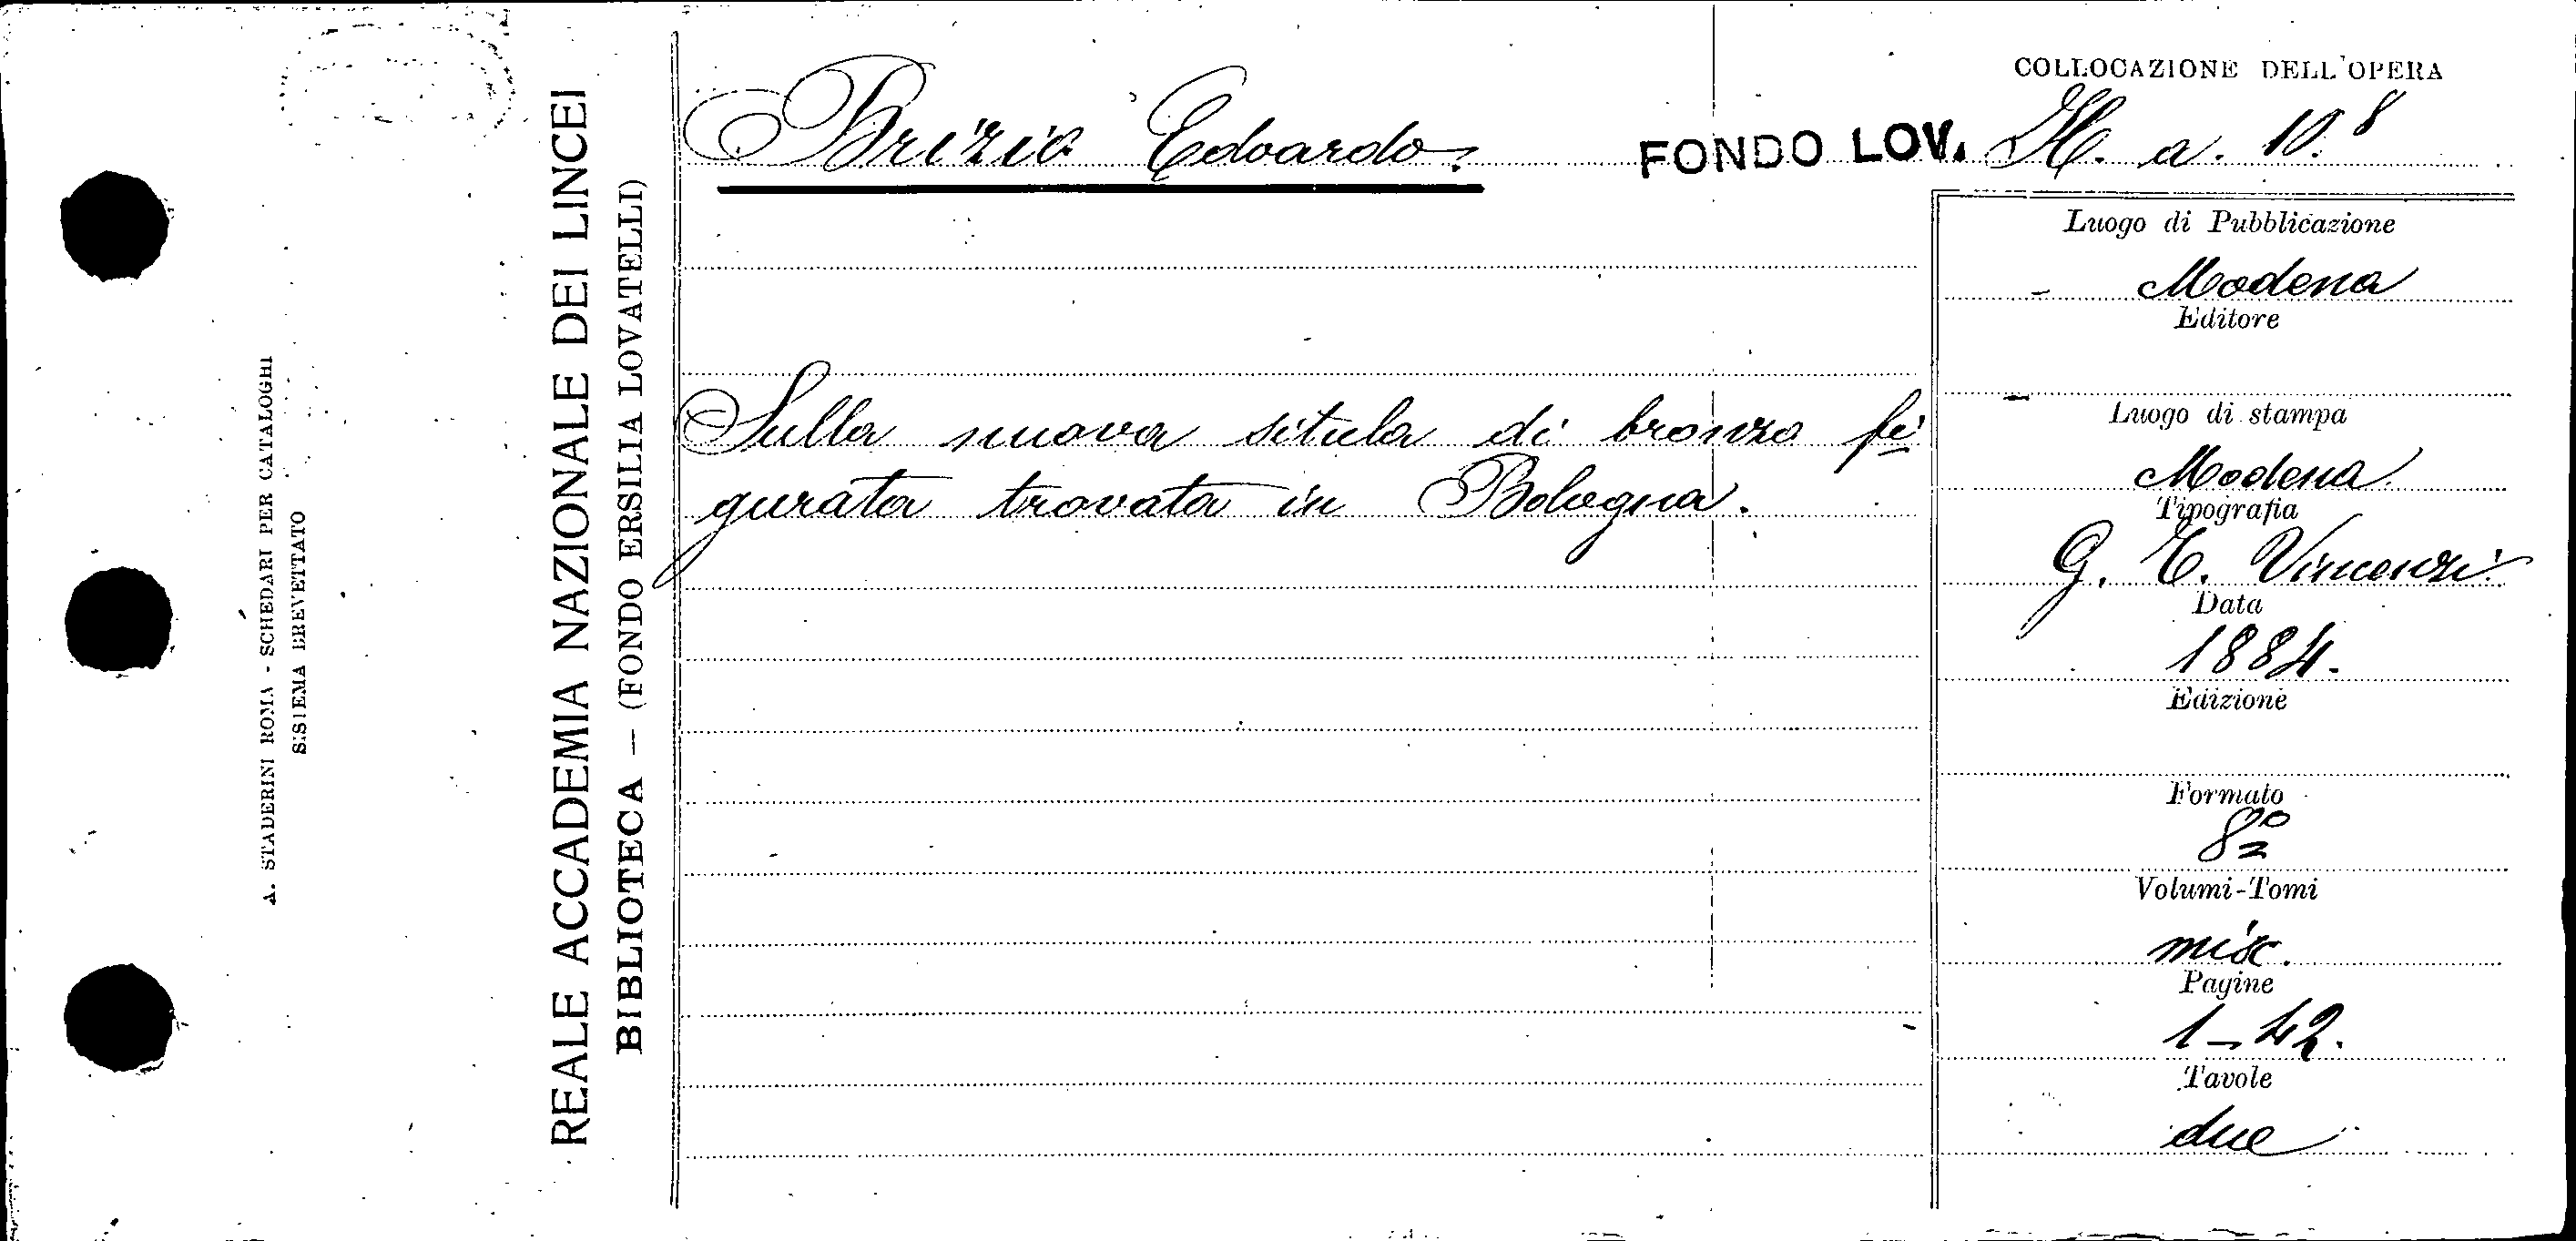 A. STADERINI ROMA - SCHEDARI PER CATALOGHI
SISIEMA BREVETTATO
REALE ACCADEMIA NAZIONALE DEI LINCEI
BIBLIOTECA — (FONDO ERSILIA LOVATELLI)
Brizio Edoardo.
FONDO LOV.
COLLOCAZIONE DELL'OPERA
H. a. 10.8
Sulla nuova situla di bronzo fi
gurata trovata in Bologna.
Luogo di Pubblicazione
Modena
Editore
Luogo di stampa
Modena
Tipografia
G. T. Vincenzi
Data
1884.
Edizione
Formato
8º
Volumi-Tomi
misc.
Pagine
1-42.
Tavole
due